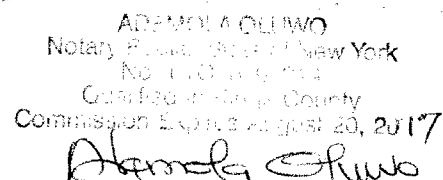 ADEMOLA OLUWO
Notary Public, State of New York
No.
Qualified in Kings County
Commission Expires August 20, 2017
Ademola Oluwo